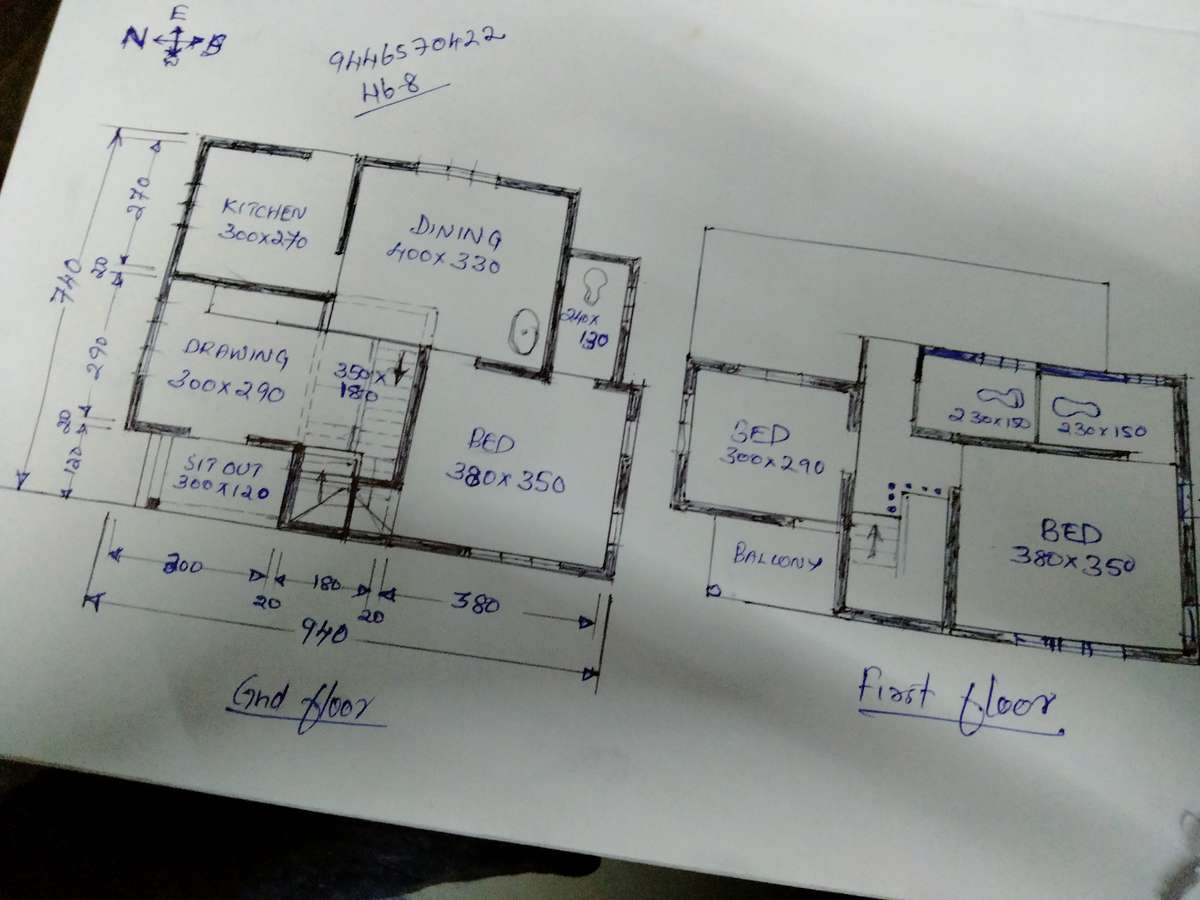 E
N
9446570422
46-8
270
20
740
290
20
120
KITCHEN
300x270
DINING
400 x 330
240x
130
DRAWING
300x290
350x
180
BED
380x350
SIT OUT
300x120
300
20
180
20
380
940
Gnd floor
BED
300x290
230x150
230x150
BALCONY
BED
380x350
First floor